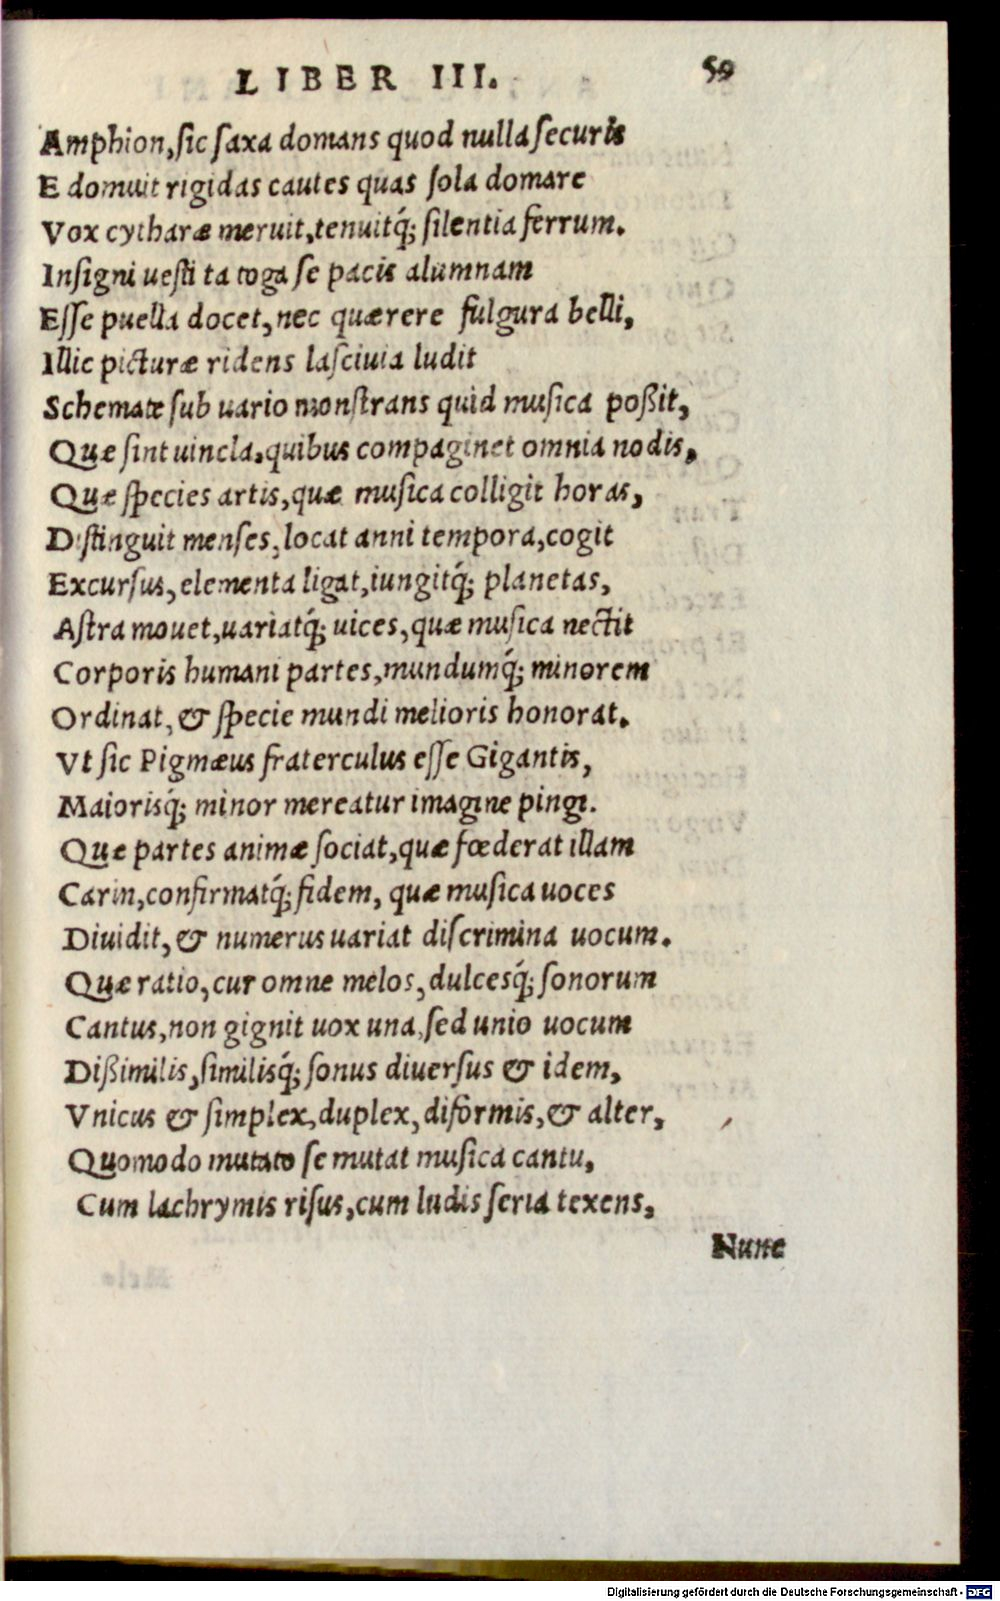 LIBER III. 59
Amphion,sic saxa domans quod nulla securis
E domuit rigidas cautes quas sola domare
Vox cytharæ meruit,tenuitq́; silentia ferrum.
Insigni uesti ta toga se pacis alumnam
Esse puella docet,nec quærere fulgura belli,
Illic picturæ ridens lasciuia ludit
Schemate sub uario monstrans quid musica poßit,
Quæ sint uincla,quibus compaginet omnia nodis,
Quæ species artis,quæ musica colligit horas,
Distinguit menses,locat anni tempora,cogit
Excursus,elementa ligat,iungitq́; planetas,
Astra mouet,uariatq́; uices,quæ musica nectit
Corporis humani partes,mundumq́; minorem
Ordinat,& specie mundi melioris honorat.
Vt sic Pigmæus fraterculus esse Gigantis,
Maiorisq́; minor mereatur imagine pingi.
Quæ partes animæ sociat,quæ fœderat illam
Carin,confirmatq́; fidem, quæ musica uoces
Diuidit,& numerus uariat discrimina uocum.
Quæ ratio,cur omne melos,dulcesq́; sonorum
Cantus,non gignit uox una,sed unio uocum
Dißimilis,similisq́; sonus diuersus & idem,
Vnicus & simplex,duplex,diformis,& alter,
Quomodo mutato se mutat musica cantu,
Cum lachrymis risus,cum ludis seria texens,
Nunc
Digitalisierung gefördert durch die Deutsche Forschungsgemeinschaft - DFG